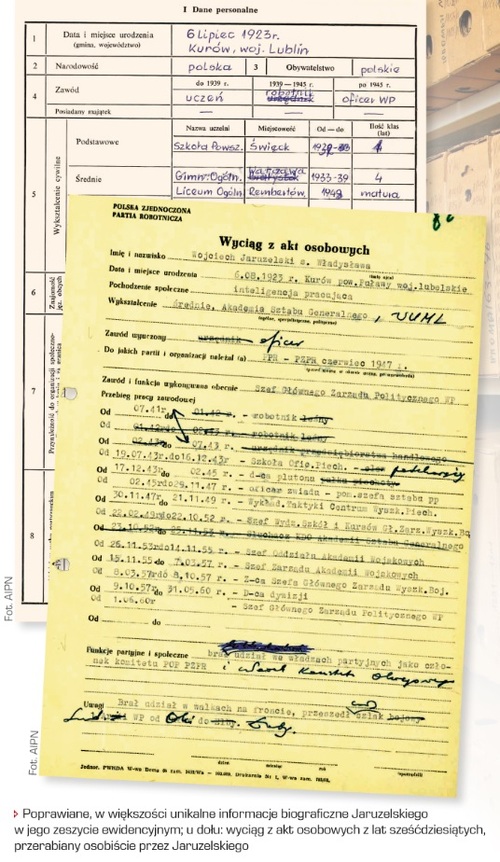 I Dane personalne
1 Data i miejsce urodzenia (gmina, województwo) 6 Lipiec 1923r. Kurów, woj. Lublin
2 Narodowość polska 3 Obywatelstwo polskie
4 Zawód do 1939 r. uczeń 1939—1945 r. robotnik urzędnik po 1945 r. oficer WP
Posiadany majątek — — —
5 Wykształcenie cywilne
Nazwa uczelni Miejscowość Od — do Ilość klas (lat)
Podstawowe Szkoła Powsz. Święck
Średnie Gimn. Ogóln. Warszawa 1933-39 4
Liceum Ogóln. Rembertów matura
6 Znajomość jęz. obcych
7
8
POLSKA ZJEDNOCZONA
PARTIA ROBOTNICZA
Wyciąg z akt osobowych
Imię i nazwisko Wojciech Jaruzelski s. Władysława
Data i miejsce urodzenia 6.08.1923 r. Kurów pow. Puławy woj. lubelskie
Pochodzenie społeczne inteligencja pracująca
Wykształcenie średnie, Akademia Sztabu Generalnego, WUML
Zawód wyuczony urzędnik oficer
Do jakich partii i organizacji należał (a) PPR - PZPR czerwiec 1947 r.
Zawód i funkcja wykonywana obecnie Szef Głównego Zarządu Politycznego WP
Przebieg pracy zawodowej
Od 07.41r. do 01.42 r. - robotnik leśny
Od 01.42 do r. - robotnik leśny
Od 02.43r do 07.43 r. - urzędnik przedsiębiorstwa handlowego
Od 19.07.43r do 16.12.43r - Szkoła Ofic. Piech.
Od 17.12.43r do 02.45 r. - d-ca plutonu
Od 02.45r do 29.11.47 r. - oficer zwiadu - pom. szefa sztabu pp
Od 30.11.47r do 21.11.49 r. - Wykład. Taktyki Centrum Wyszk. Piech.
Od 22.02.49r do 22.10.52 r. - Szef Wydz. Szkół i Kursów Gł. Zarz. Wyszk. Boj.
Od 23.10.52r do r. - Słuchacz KDO Akademii Sztabu Generalnego
Od 26.11.53r do 14.11.55 r. - Szef Oddziału Akademii Wojskowych
Od 15.11.55r do 7.03.57 r. - Szef Zarządu Akademii Wojskowych
Od 8.03.57r do 8.10.57 r. - Z-ca Szefa Głównego Zarządu Wyszk. Boj.
Od 9.10.57r do 31.05.60 r. - D-ca dywizji
Od 1.06.60r - Szef Głównego Zarządu Politycznego WP
Od do
Funkcje partyjne i społeczne brał udział we władzach partyjnych jako czło-
nek komitetu POP PZPR
Uwagi Brał udział w walkach na froncie, przeszedł szlak bojowy
WP od Oki do
Fot. AIPN
Fot. AIPN
Poprawiane, w większości unikalne informacje biograficzne Jaruzelskiego
w jego zeszycie ewidencyjnym; u dołu: wyciąg z akt osobowych z lat sześćdziesiątych,
przerabiany osobiście przez Jaruzelskiego